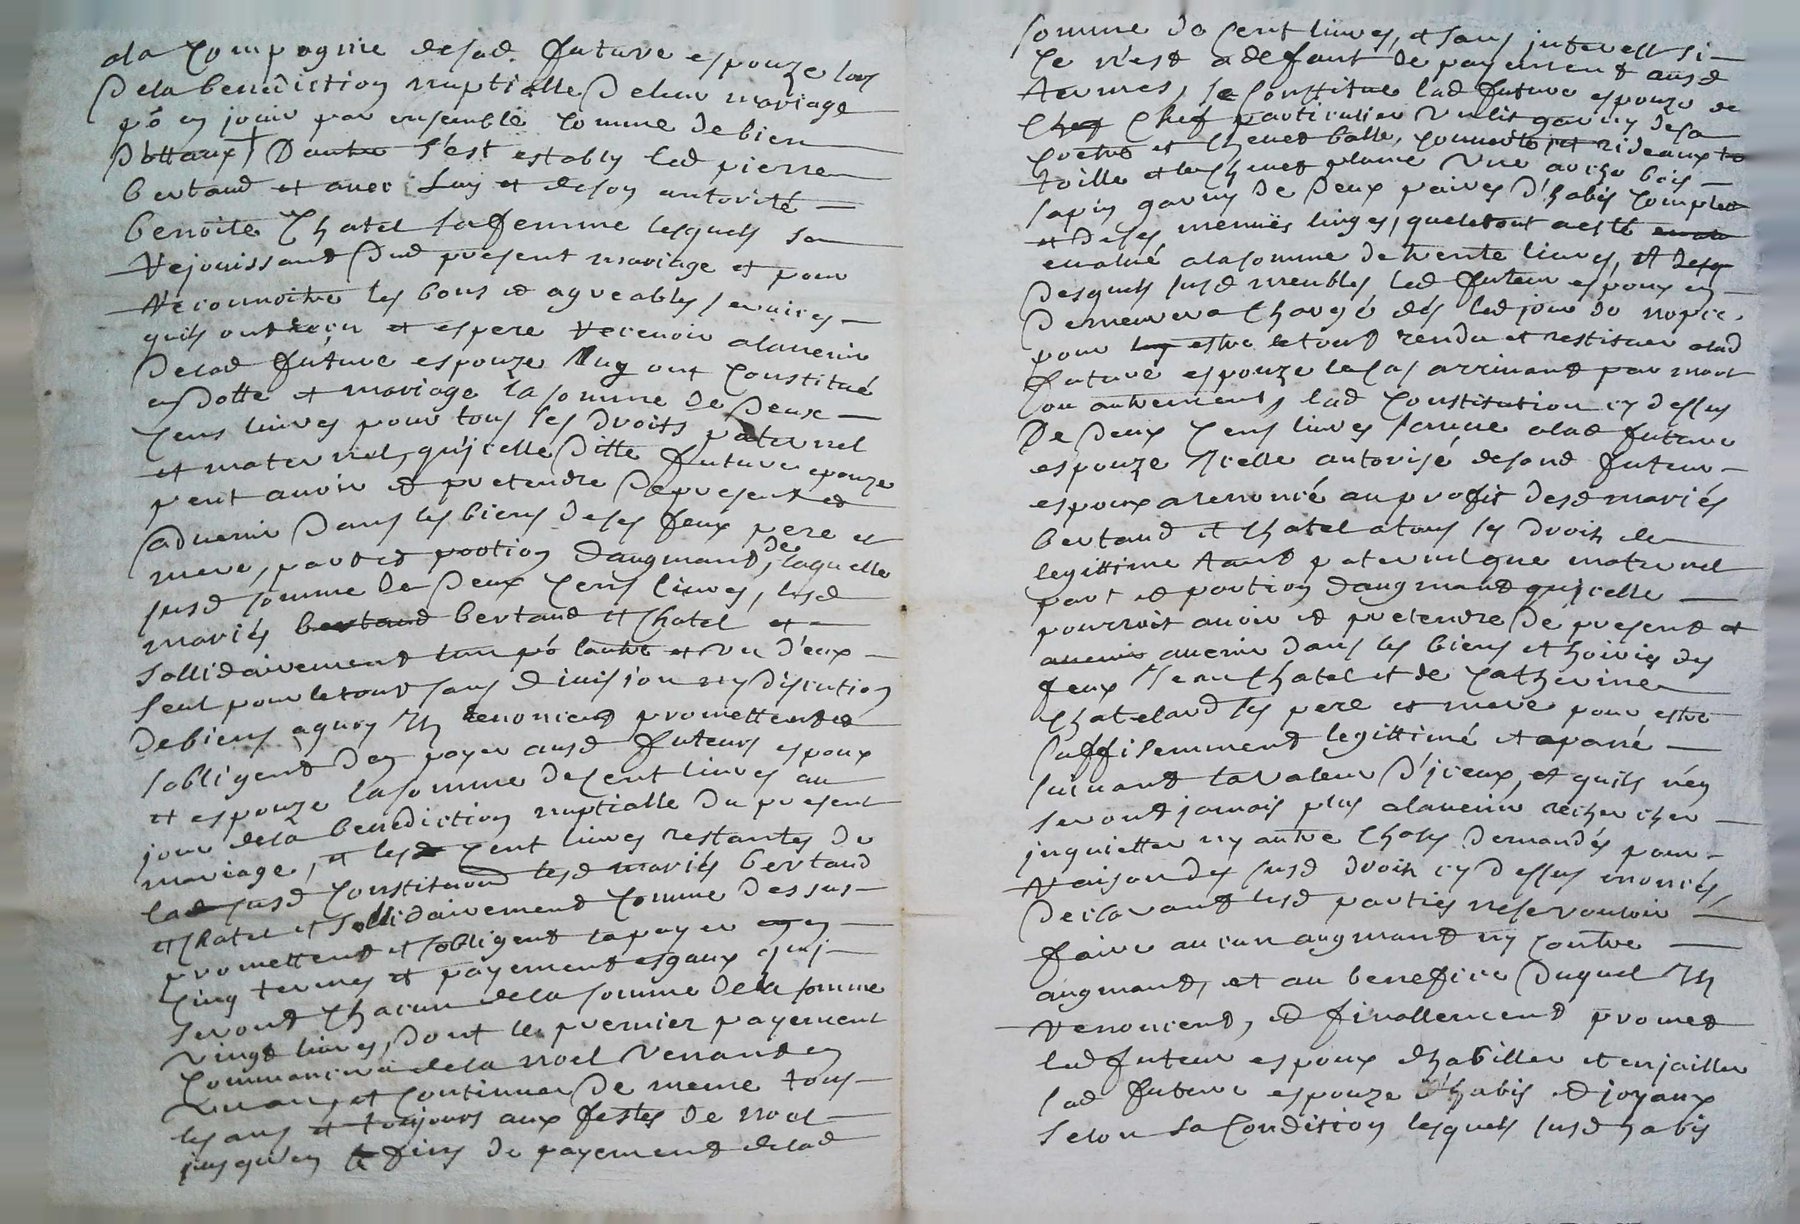 a la Compagnie desad. future espouze lors
De la benediction nuptialle De leur mariage
po en jouir par ensemble Comme de bien
Dottaux, Dautre s'est estably led pierre
bertaud et avec Luy et de son autorité
benoite Chatel sa femme lesquels se
rejouissant Dud present mariage et pour
reconnoitre les bons et agreables services
quils ont reçu et espere recevoir alavenir
Delad future espouze luy ont Constitué
en Dotte et mariage la somme de Deux
Cens livres pour tous ses droits paternel
et maternel, qu'jcelle Ditte future epouze
peut avoir et pretendre De present et
advenir Dans les biens de ses feux pere et
mere, part et portion daugmand, de laquelle
susd somme de Deux Cens livres, lesd
mariés bertaud bertaud et Chatel et
sollidairement lun po lautre et un d'eux
seul pour le tout sans division ny discution
de biens aquoy Ils renoncent promettent et
sobligent den payer ausd futeurs espoux
et espouze la somme de Cent livres au
jour de la benediction nuptialle du present
mariage, et lesd Cent livres restantes de
lad susd Constitution lesd mariés bertaud
et Chatel et sollidairement Comme dessus
promettent et sobligent la payer en
Cinq termes et payements esgaux qui
seront Chacun de la somme de la somme
vingt livres, dont le premier payement
Commancera de la noel venant en
un an, et Continuer De meme tous
les ans et toujours aux festes de noel
jusqu'en fins de payement delad
somme de Cent livres, et sans interest si
Ce n'est a defaut de payement ausd
termes, se Constitue lad future espouze de
Chef Chef particulier un lit garny de sa
Coetre et Chevet balle, Couverte et rideaux
toille et le Chevet plume une arche bois
sapin garny de Deux paires D'habis Complet
et de ses menües linges, que le tout a esté
evalué a la somme de trente livres,
Desquels susd meubles led futeur espoux en
Demeurera Chargé dés led jour de nopce
pour estre le tout rendu et restituer alad
future espouze le Cas arrivant par mort
ou autrement, lad Constitution cy dessus
De Deux Cens livres alad future
espouze Icelle autorisé desond futeur
espoux a renoncé au profit desd mariés
bertaud et Chatel a tous ses droits de
legittime tant paternel que maternel
part et portion daugmand qu'jcelle
pourroit avoir et pretendre De present et
avenir avenir dans les biens et hoiries des
feux Jean Chatel et de Catherine
Chatelard ses pere et mere pour estre
suffisemment legittimé et apané
suivant la valeur D'jceux, et quils n'en
seront jamais plus alavenir rechercher
jnquietter ny autre Choses demandés pour
raison des susd droits cy dessus enoncés,
Declarant lesd parties ne se vouloir
faire aucun augmand ny Contre
augmand, et au benefice Duquel Ils
renoncent, et finallement promet
led futeur espoux dhabiller et enjailler
lad future espouze D'habis et joyaux
selon sa Condition lesquels susd habis